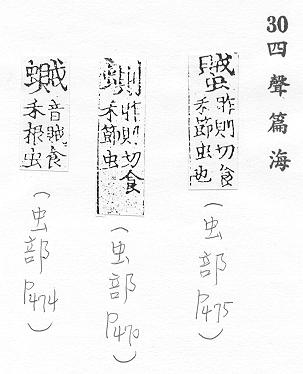 30 四聲篇海
昨則切食
禾節虫也
（虫部
P475）
昨則切食
禾節虫
（虫部
P470）
蠈
音賊食
禾根虫
（虫部
P474）